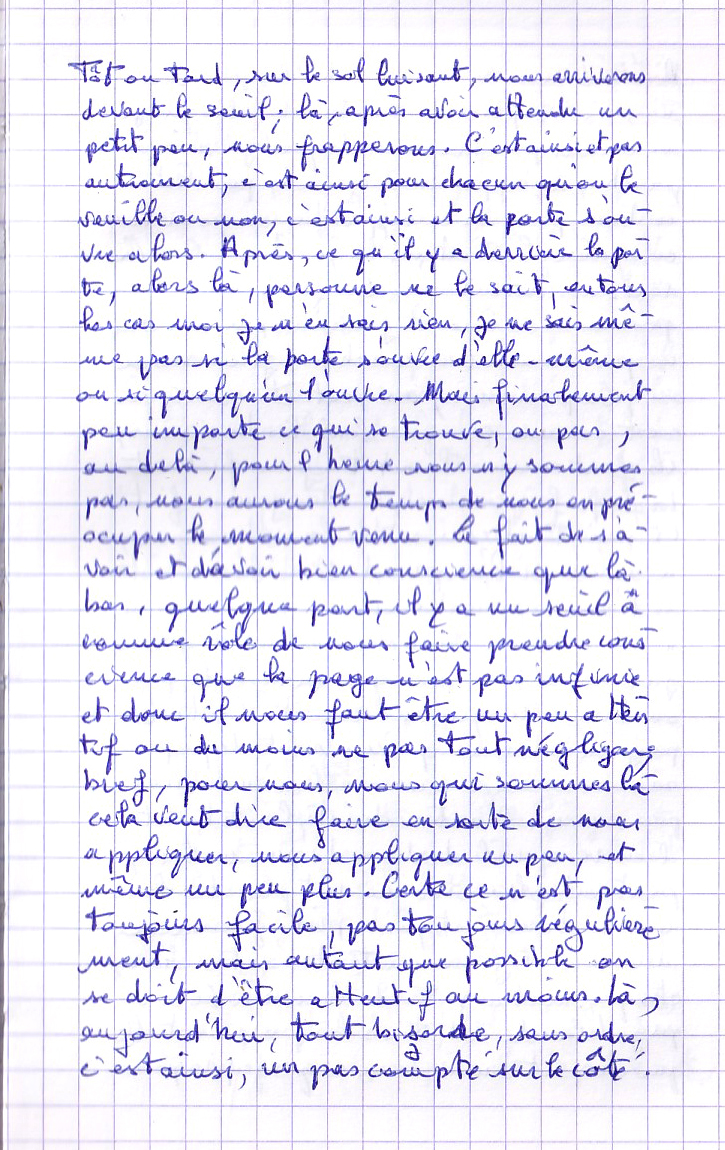 Tôt ou tard, sur le sol luisant, nous arriverons
devant le seuil; là, après avoir attendu un
petit peu, nous frapperons. C'est ainsi et pas
autrement, c'est ainsi pour chacun qu'on le
veuille ou non, c'est ainsi et la porte s'ou-
vre alors. Après, ce qu'il y a derrière la por
te, alors là, personne ne le sait, en tous
les cas moi je n'en sais rien, je ne sais mê-
me pas si la porte s'ouvre d'elle-même
ou si quelqu'un l'ouvre. Mais finalement
peu importe ce qui se trouve, ou pas,
au delà, pour l'heure nous n'y sommes
pas, nous aurons le temps de nous en pré-
ocuper le moment venu. Le fait de sa-
voir et d'avoir bien conscience que là
bas, quelque part, il y a un seuil a
comme rôle de nous faire prendre cons
cience que la page n'est pas infinie
et donc il nous faut être un peu atten
tif ou du moins ne pas tout négliger;
bref, pour nous, nous qui sommes là
cela veut dire faire en sorte de nous
appliquer, nous appliquer un peu, et
même un peu plus. Certe ce n'est pas
toujours facile, pas toujours régulière
ment, mais autant que possible on
se doit d'être attentif au moins. Là,
aujourd'hui, tout sans ordre,
c'est ainsi, un pas compté sur le côté.